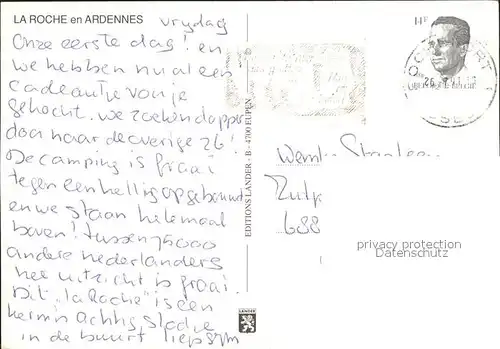 LA ROCHE en ARDENNES
vrydag
Onze eerste dag! en
we hebben nu al een
cadeautje voor je
gekocht. we zoeken dapper
door naar de overige 26!
De camping is fraai
tegen een helling opgebouwd
en we staan helemaal
boven! tussen 75000
andere nederlanders
het uitzicht is fraai
Dit "la Roche" is een
stadje
in de buurt liefs
EDITIONS LANDER - B - 4700 EUPEN
LANDER
14F
BELGIQUE
688
privacy protection
Datenschutz